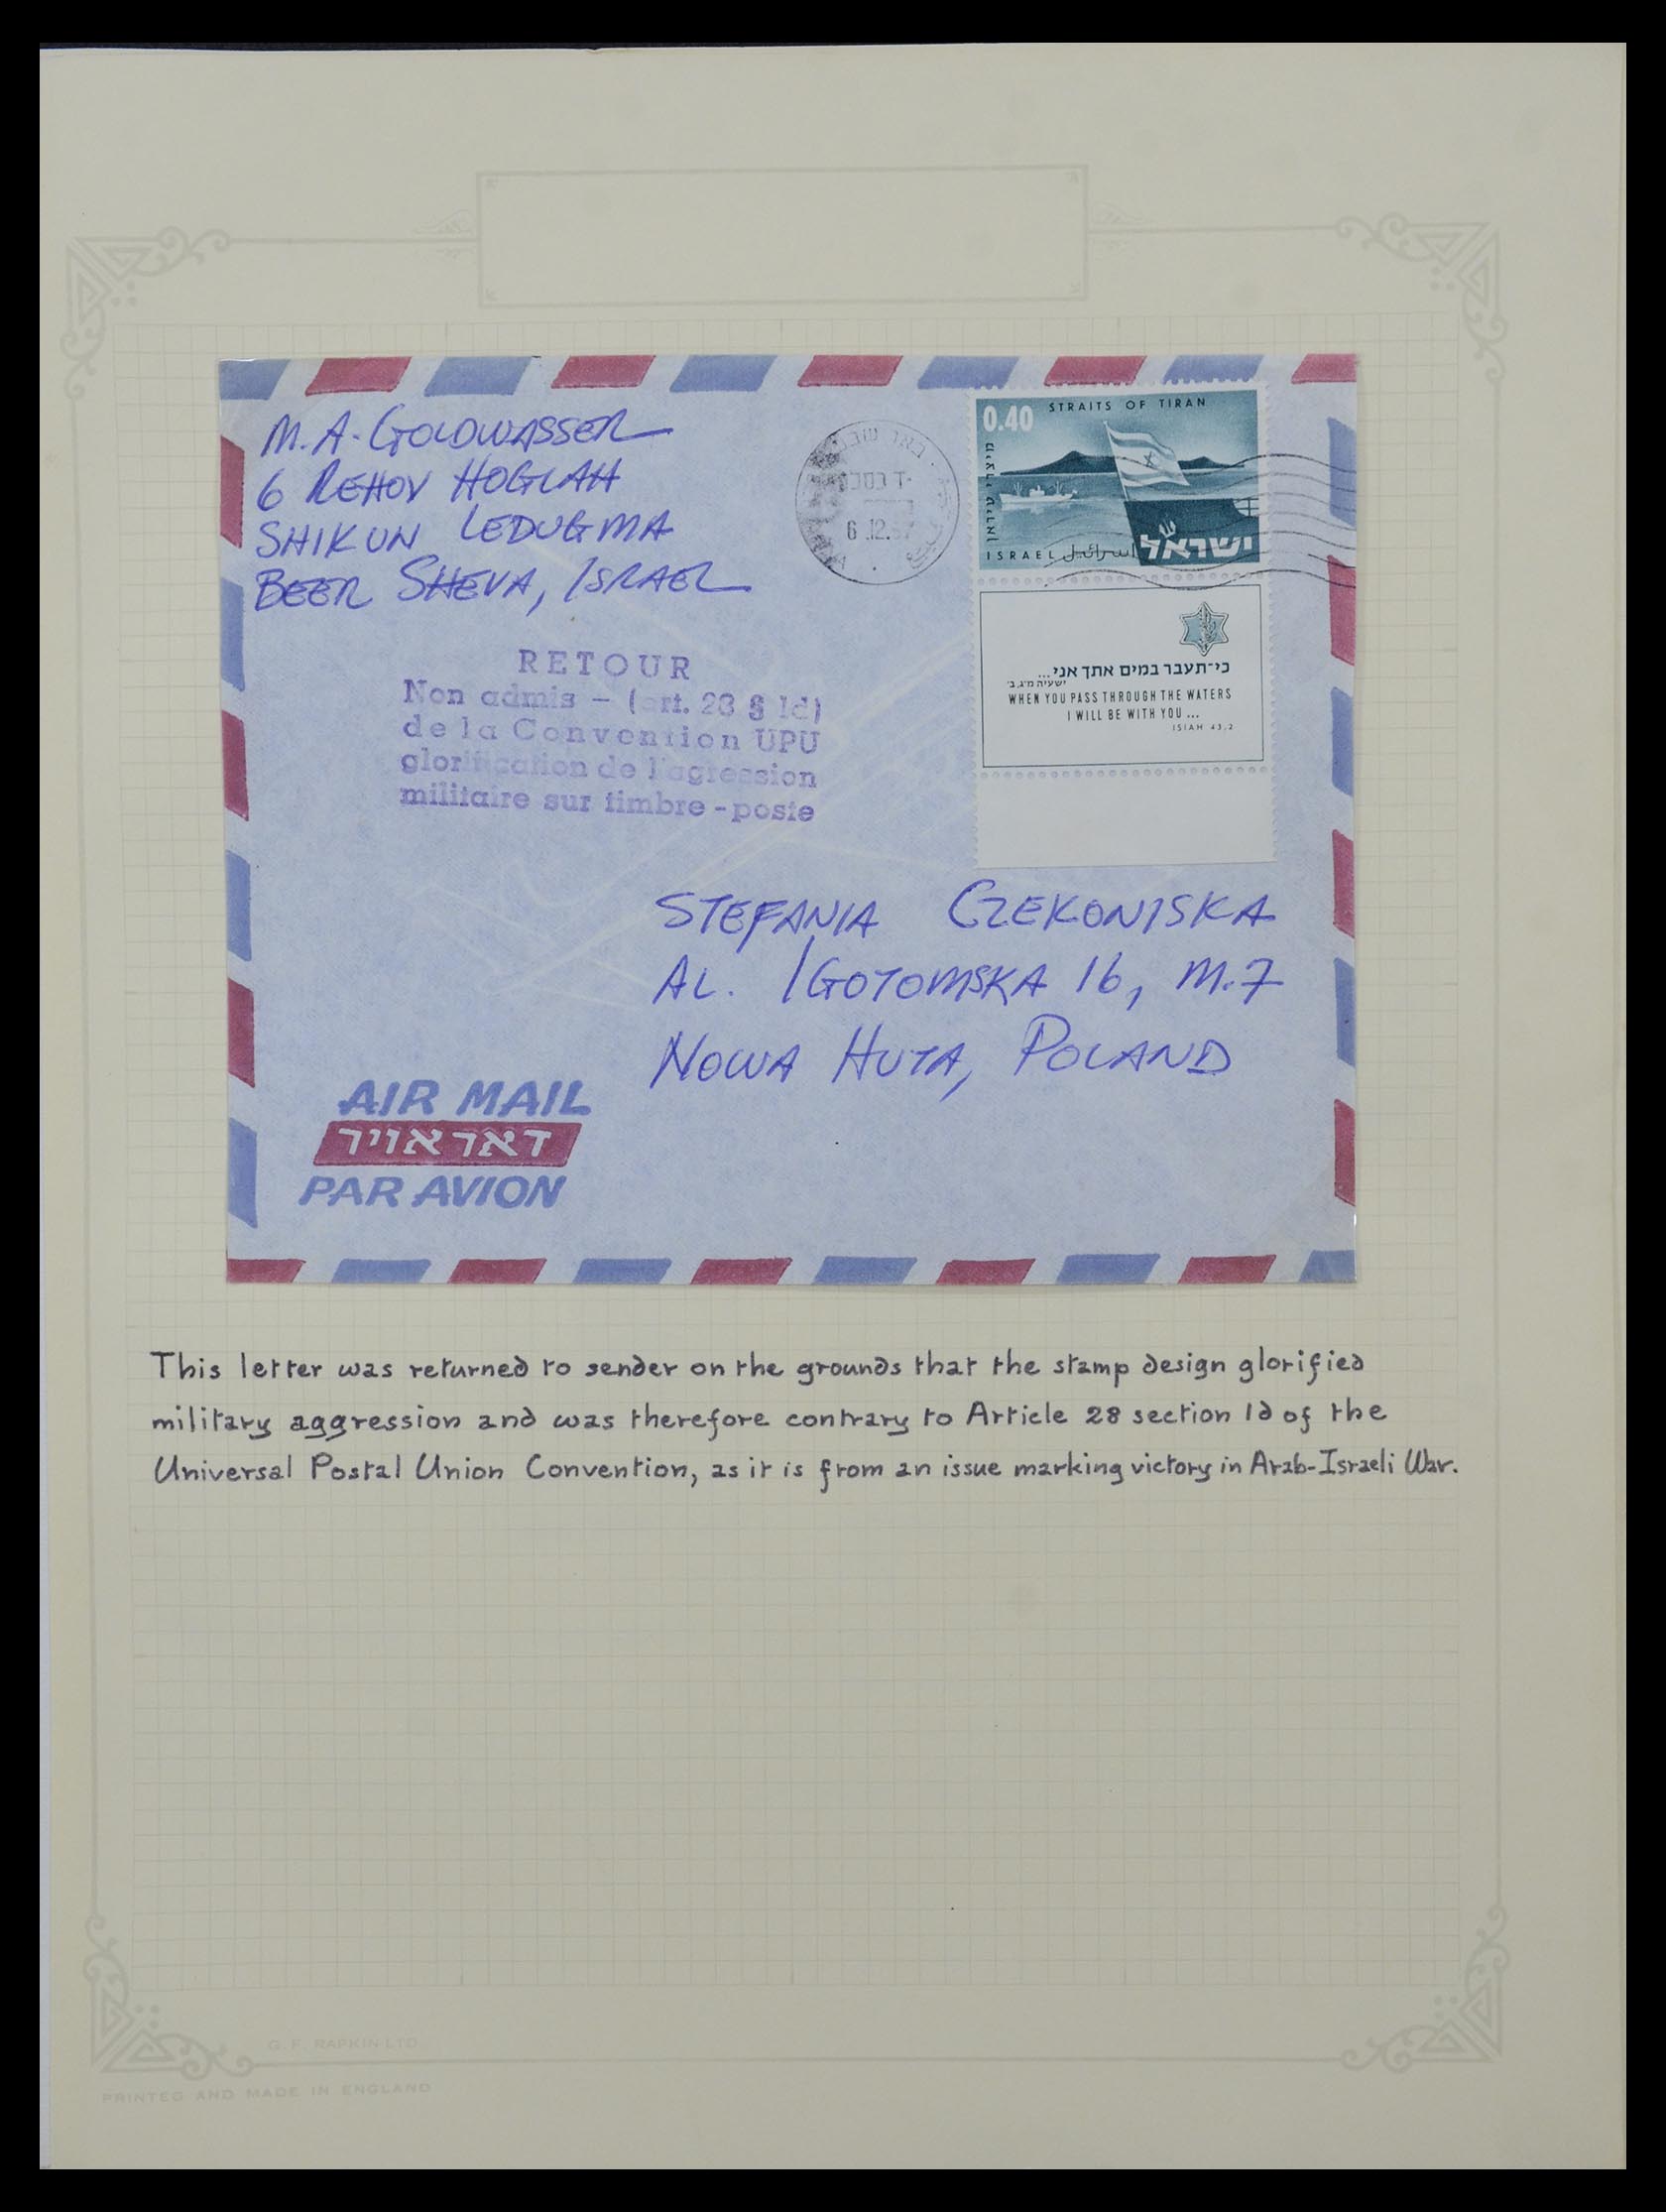 M.A. GOLDWASSER
6 REHOV HOGLAH
SHIKUN LEDUGMA
BEER SHEVA, ISRAEL
6.12.67
0.40 STRAITS OF TIRAN
מיצרי טיראן
ISRAEL اسرائيل ישראל
כי־תעבר במים אתך אני...
ישעיה מ״ג, ב׳
WHEN YOU PASS THROUGH THE WATERS
I WILL BE WITH YOU ...
ISIAH 43,2
RETOUR
Non admis – (art. 28 § 1d)
de la Convention UPU
glorification de l'agression
militaire sur timbre-poste
STEFANIA CZEKONISKA
AL. IGOTOMSKA 16, M.7
NOWA HUTA, POLAND
AIR MAIL
דאר אויר
PAR AVION
This letter was returned to sender on the grounds that the stamp design glorified
military aggression and was therefore contrary to Article 28 section 1d of the
Universal Postal Union Convention, as it is from an issue marking victory in Arab-Israeli War.
G. F. RAPKIN LTD
PRINTED AND MADE IN ENGLAND